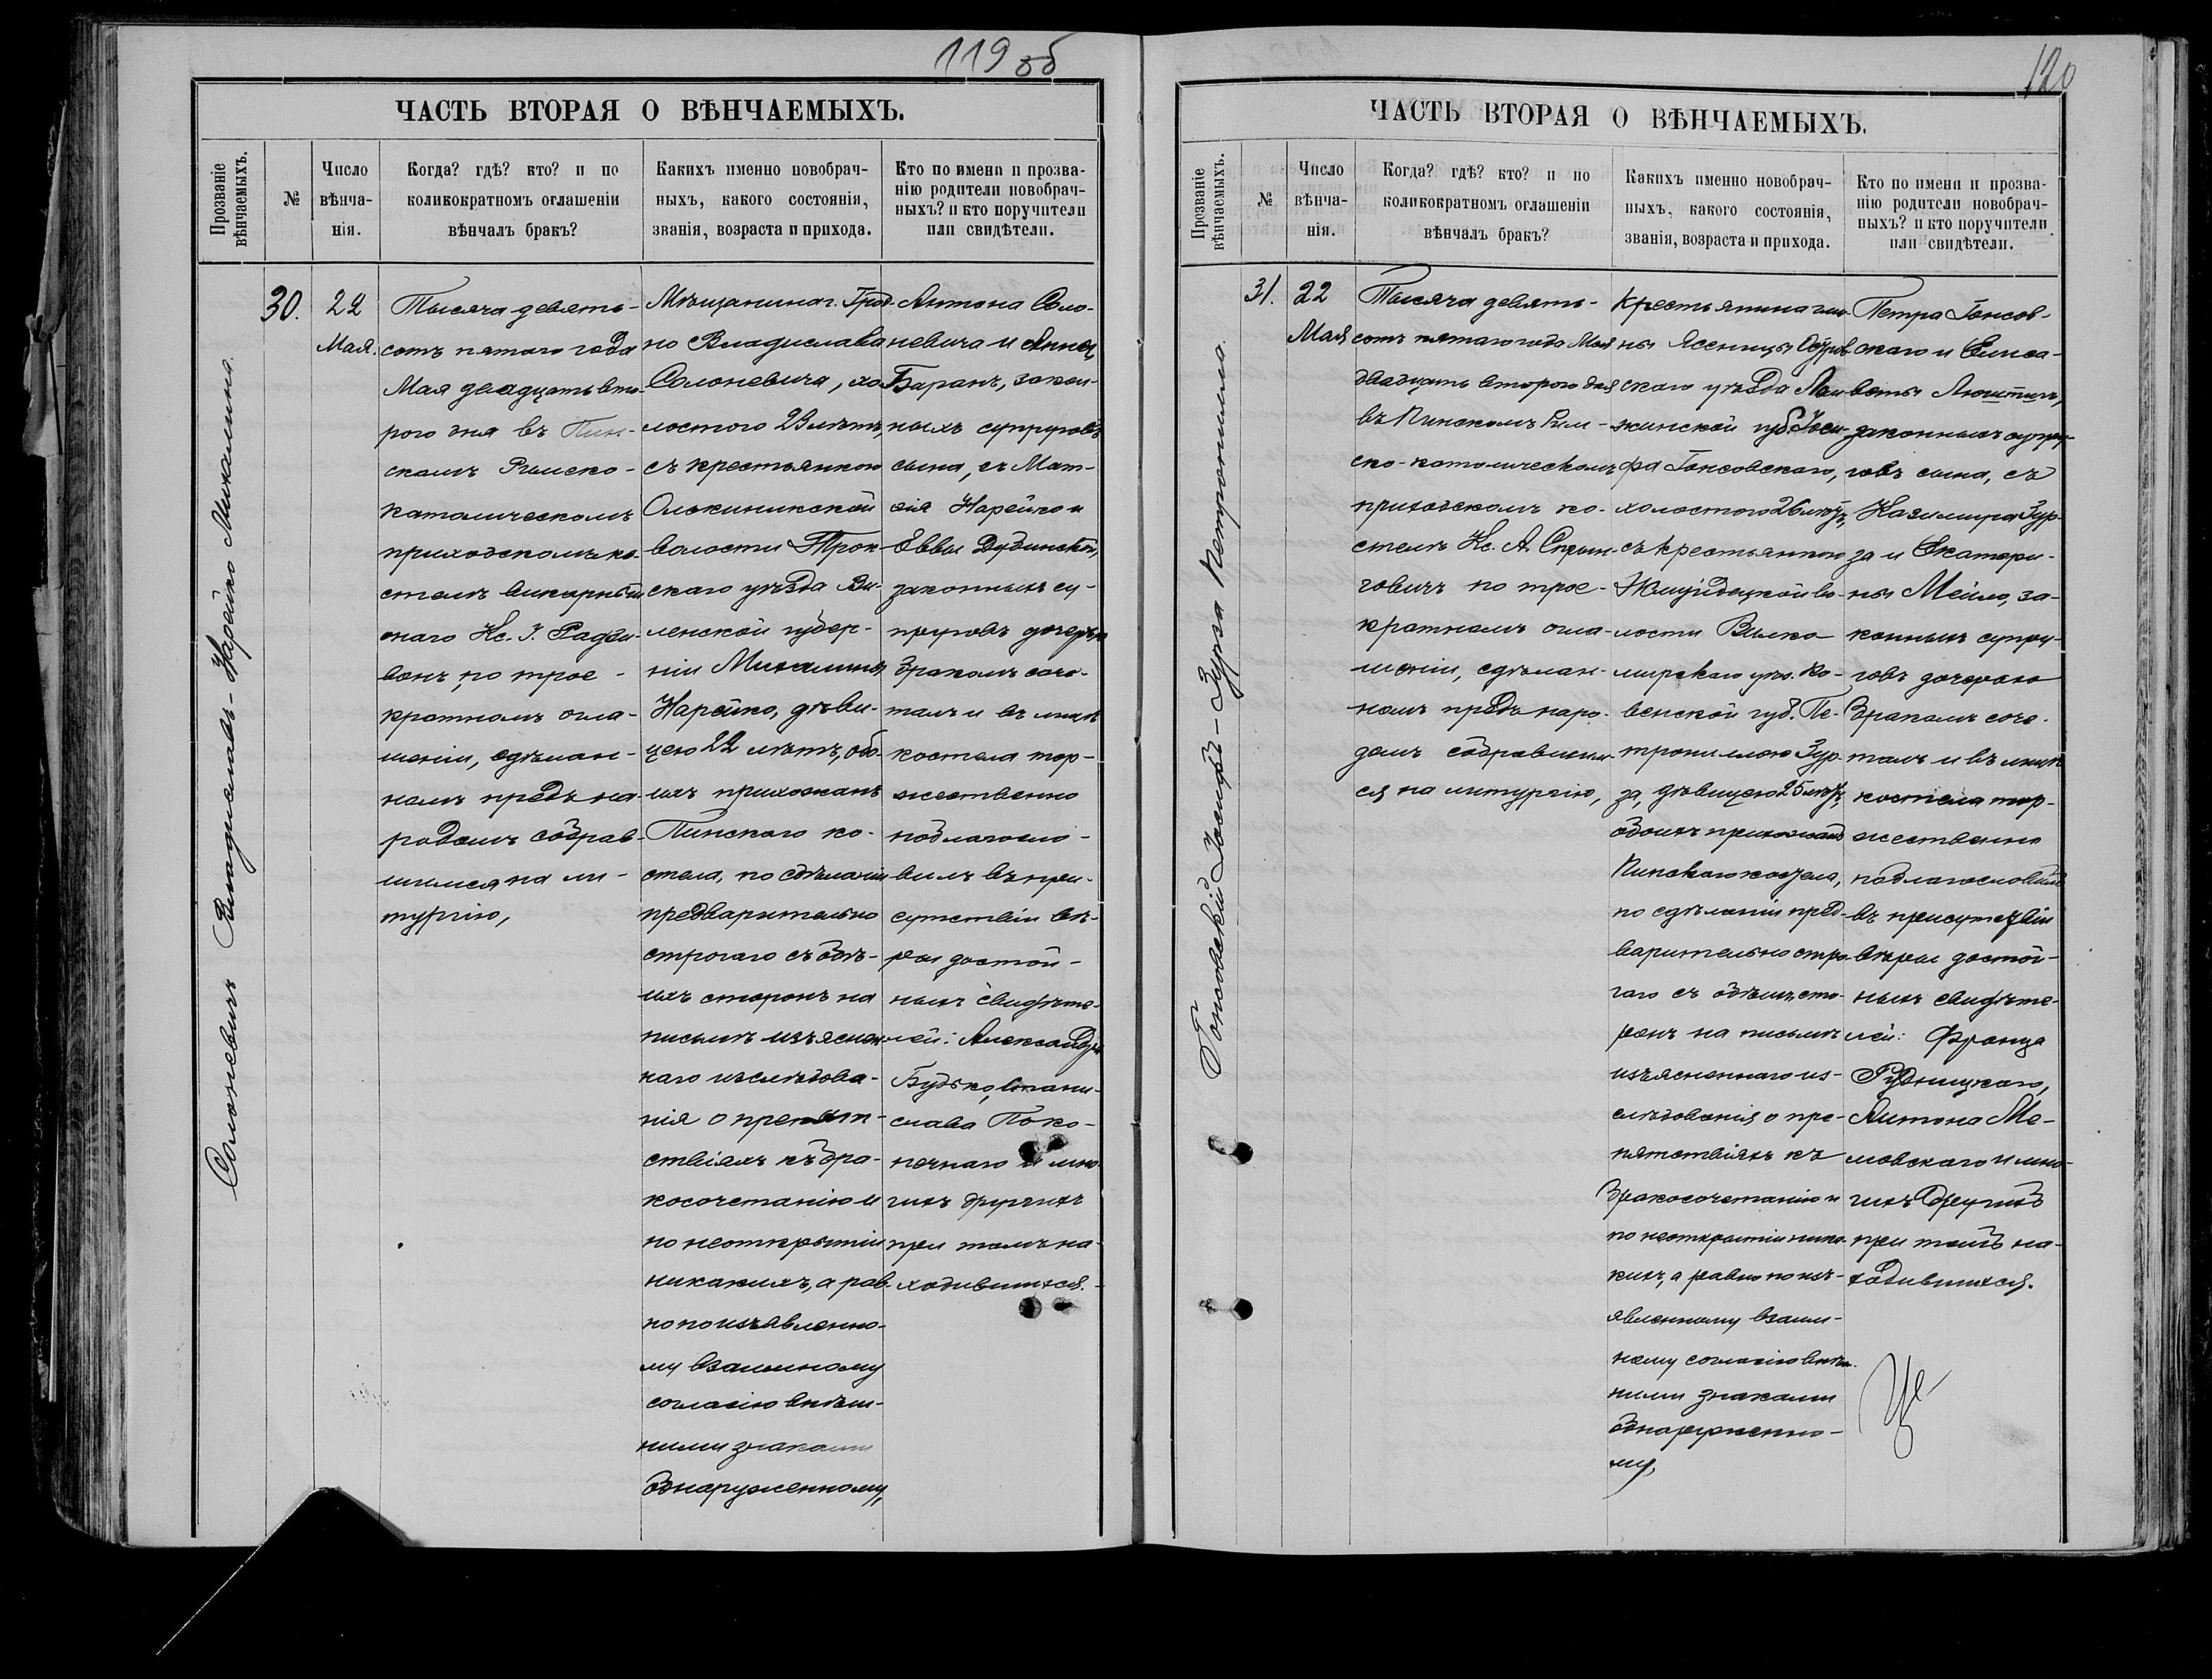 119 об
ЧАСТЬ ВТОРАЯ О ВѢНЧАЕМЫХЪ.
Прозваніе вѣнчаемыхъ.
№
Число вѣнчанія.
Когда? гдѣ? кто? и по
коликократномъ оглашеніи
вѣнчалъ бракъ?
Какихъ именно новобрач-
ныхъ, какого состоянія,
званія, возраста и прихода.
Кто по имени и прозва-
нію родители новобрач-
ныхъ? и кто поручители
или свидѣтели.
Солоневичъ Владиславъ - Нарейко Михалина.
30.
22
Мая.
Тысяча девять-
сотъ пятаго года
Мая двадцать вто-
рого дня въ Пин-
скомъ Римско-
католическомъ
приходскомъ ко-
стелѣ викарный
онаго Кс. І. Радзи-
вонъ, по трое-
кратномъ огла-
шеніи, сдѣлан-
номъ предъ на-
родомъ собрав-
шимся на ли-
тургію,
Мѣщанина г. Грод-
но Владислава
Солоневича, хо-
лостого 23 лѣтъ,
съ крестьянкою
Олькиникской
волости Трок-
скаго уѣзда Ви-
ленской губер-
ніи Михалиною
Нарейко, дѣви-
цею 22 лѣтъ, обо-
ихъ прихожанъ
Пинскаго ко-
стела, по сдѣланіи
предварительно
строгаго съ обѣ-
ихъ сторонъ на
письмѣ изъяснен-
наго изслѣдова-
нія о препят-
ствіяхъ къ бра-
косочетанію и
по неоткрытіи
никакихъ, а рав-
но по изъявленно-
му взаимному
согласію внѣш-
ними знаками
обнаруженному,
Антона Соло-
невича и Анны
Баранъ, закон-
ныхъ супруговъ
сына, съ Мат-
вія Нарейко и
Еввы Дубинской,
законныхъ су-
пруговъ дочерью
бракомъ соче-
талъ и въ лицѣ
костела тор-
жественно
поблагосло-
вилъ въ при-
сутствіи вѣ-
ры достой-
ныхъ свидѣте-
лей: Александра
Будько, Стани-
слава Поко-
нечнаго и мно-
гихъ другихъ
при томъ на-
ходившихся.
120
ЧАСТЬ ВТОРАЯ О ВѢНЧАЕМЫХЪ.
Прозваніе вѣнчаемыхъ.
№
Число вѣнчанія.
Когда? гдѣ? кто? и по
коликократномъ оглашеніи
вѣнчалъ бракъ?
Какихъ именно новобрач-
ныхъ, какого состоянія,
званія, возраста и прихода.
Кто по имени и прозва-
нію родители новобрач-
ныхъ? и кто поручители
или свидѣтели.
Гонсовскій Іосифъ - Зурза Петронилла.
31.
22
Мая
Тысяча девять-
сотъ пятаго года Мая
двадцать второго дня
въ Пинскомъ Рим-
ско-католическомъ
приходскомъ ко-
стелѣ Кс. А.
по трое-
кратномъ огла-
шеніи, сдѣлан-
номъ предъ наро-
домъ собравшим-
ся на литургію,
Крестьянина гми-
ны Ясеницы Остров-
скаго уѣзда Лом-
жинской губ. Іоси-
фа Гонсовскаго,
холостого 26 лѣтъ,
съ крестьянкою
Жмуйдецкой во-
лости Вилко-
мирскаго уѣз. Ко-
венской губ. Пе-
трониллою Зур-
за, дѣвицею 25 лѣтъ,
обоихъ прихожанъ
Пинскаго костела,
по сдѣланіи пред-
варительно стро-
гаго съ обѣихъ сто-
ронъ на письмѣ
изъясненнаго из-
слѣдованія о пре-
пятствіяхъ къ
бракосочетанію и
по неоткрытіи ника-
кихъ, а равно по изъ-
явленному взаим-
ному согласію внѣш-
ними знаками
обнаруженно-
му,
Петра Гонсов-
скаго и Елиса-
веты
законныхъ супру-
говъ сына, съ
Казимира Зур-
за и Екатери-
ны Мейло, за-
конныхъ супру-
говъ дочерью
бракомъ соче-
талъ и въ лицѣ
костела тор-
жественно
поблагословилъ
въ присутствіи
вѣры достой-
ныхъ свидѣте-
лей: Франца
Рудницкаго,
Антона Ме-
ловскаго и мно-
гихъ другихъ
при томъ на-
ходившихся.